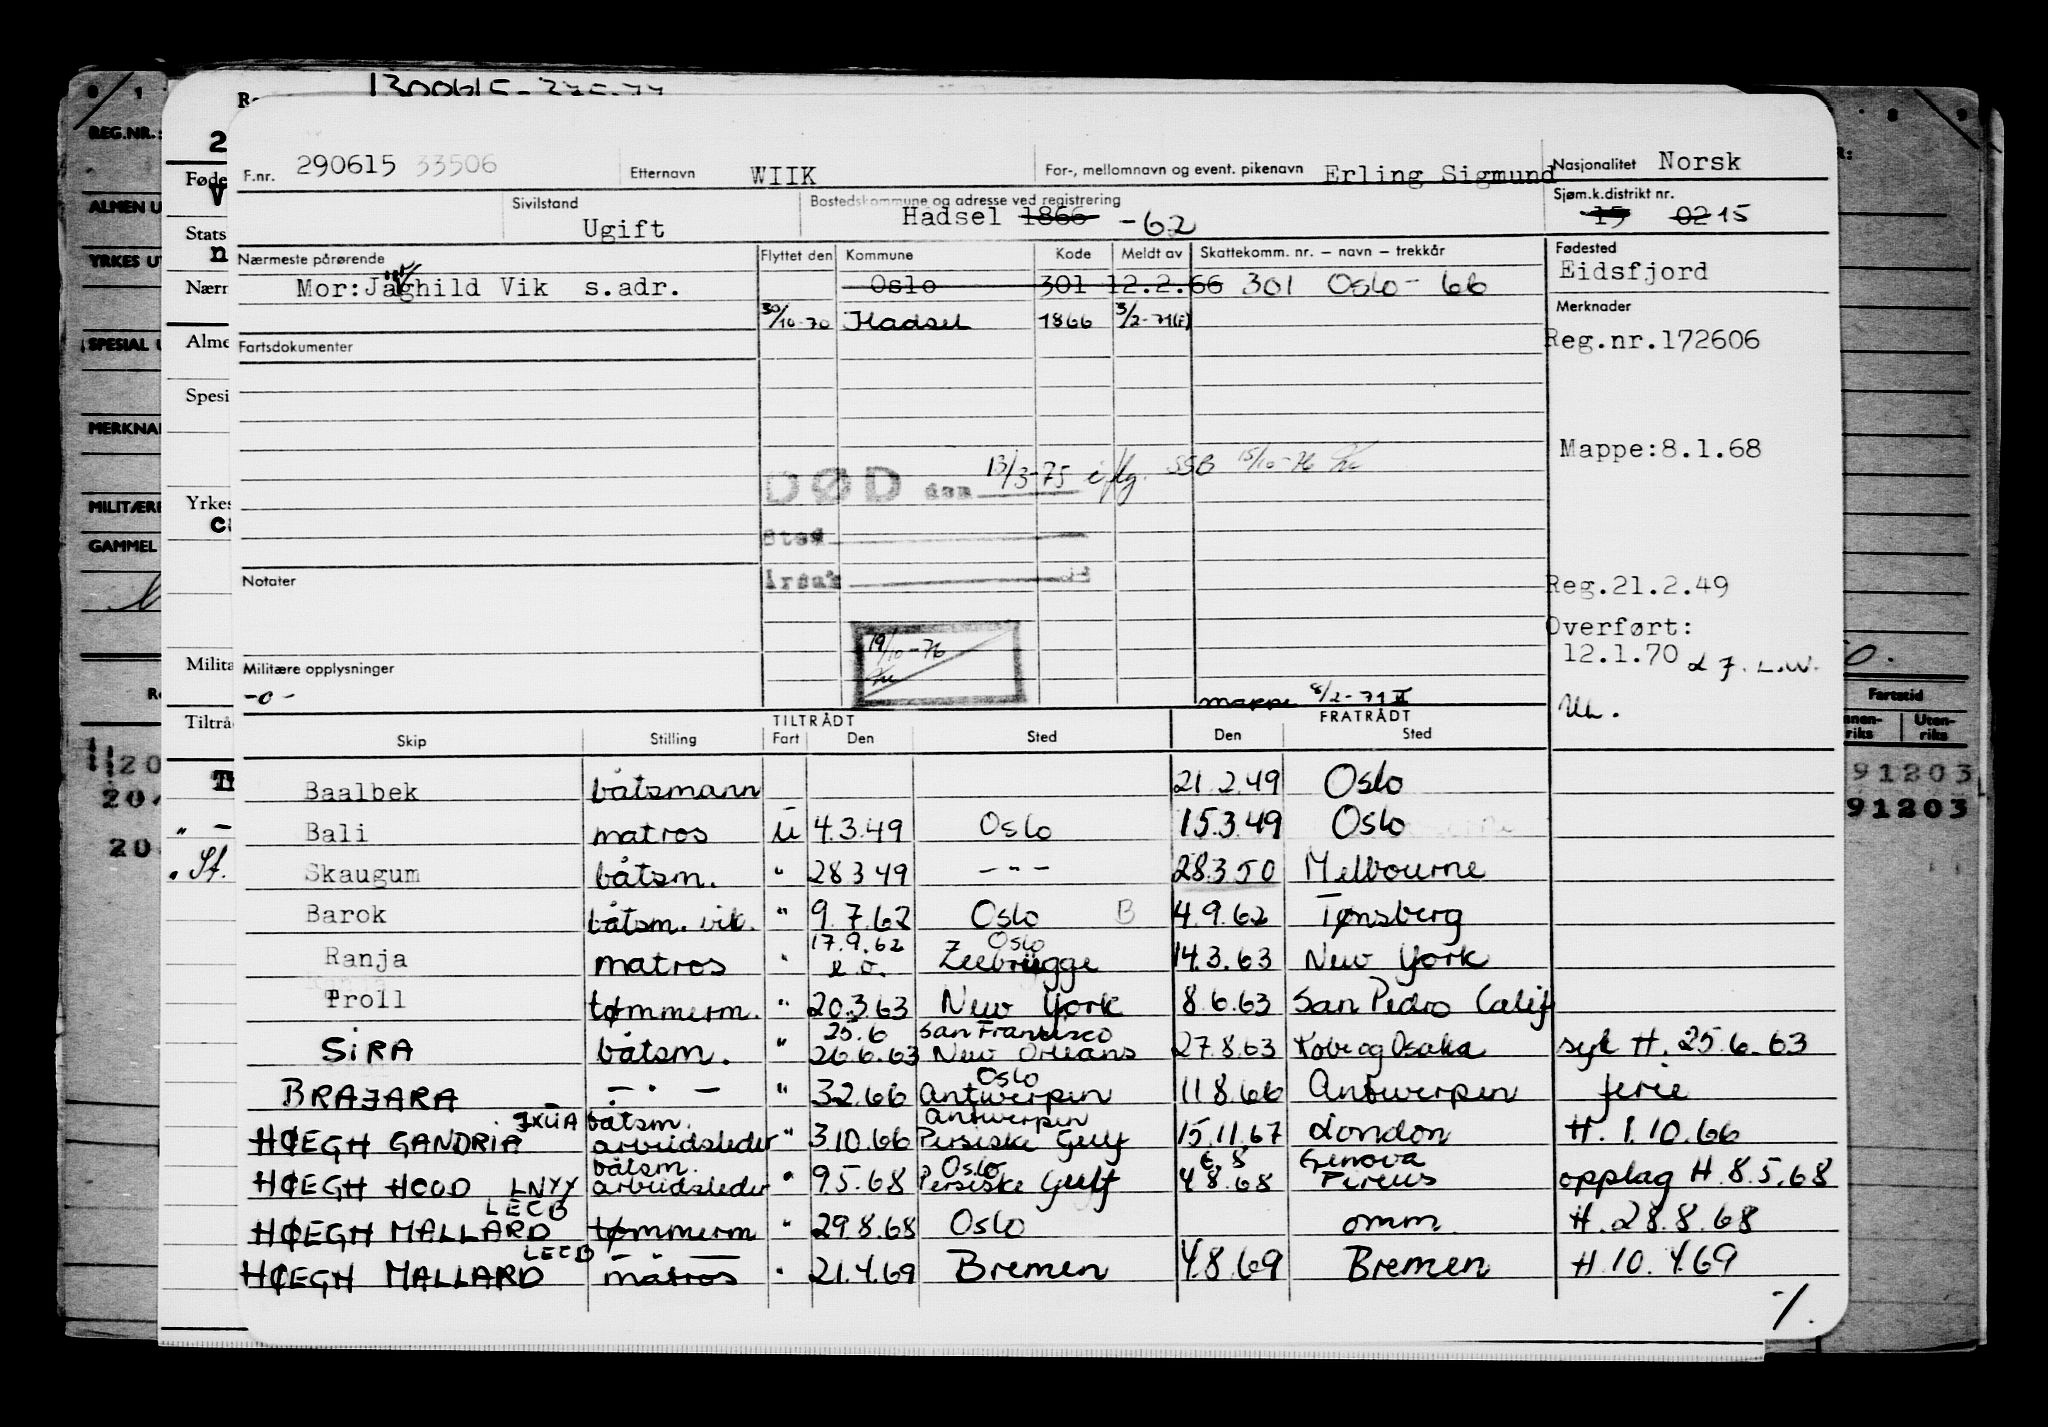 F.nr. 290615 33506 Etternavn WIIK For-, mellomnavn og event. pikenavn Erling Sigmund Nasjonalitet Norsk
Sivilstand Ugift Bostedskommune og adresse ved registrering Hadsel 1866 -62 Sjøm.k.distrikt nr. 15 02 15
Nærmeste pårørende Flyttet den Kommune Kode Meldt av Skattekomm. nr. – navn – trekkår Fødested
Mor: Jaghild Vik s.adr. Oslo 301 12.2.66 301 Oslo - 66 Eidsfjord
30/10-70 Hadsel 1866 3/2-71(E) Merknader
Fartsdokumenter Reg.nr.172606
Mappe:8.1.68
DØD den 13/3-75 iflg. SSB 15/10-76
Sted
Årsak
Notater Reg.21.2.49
Overført:
12.1.70
19/10-76
Militære opplysninger
-o-
mappe 8/2-71
TILTRÅDT FRATRÅDT
Skip Stilling Fart Den Sted Den Sted
Baalbek båtsmann 21.2.49 Oslo
Bali matros u 4.3.49 Oslo 15.3.49 Oslo
Skaugum båtsm. " 28.3.49 - " - 28.3.50 Melbourne
Barok båtsm. vik. " 9.7.62 Oslo B 4.9.62 Tønsberg
17.9.62 Oslo
Ranja matros " e.o. Zeebrügge 14.3.63 New York
Troll tømmerm. " 20.3.63 New York 8.6.63 San Pedro Calif
25.6 San Francisco
SIRA båtsm. " 26.6.63 New Orleans 27.8.63 Kobe og Osaka syk H. 25.6.63
Oslo
BRAJARA - " - " 3.2.66 Antwerpen 11.8.66 Antwerpen ferie
JXUA båtsm. Antwerpen
HØEGH GANDRIA arbeidsleder " 3.10.66 Persiske Gulf 15.11.67 London H. 1.10.66
båtsm. Oslo 6.8 Genova
HØEGH HOOD LNYY arbeidsleder " 9.5.68 Persiske Gulf 4.8.68 Pireus opplag H. 8.5.68
LECB
HØEGH MALLARD tømmerm " 29.8.68 Oslo omm. H. 28.8.68
LECB - " -
HØEGH MALLARD matros " 21.4.69 Bremen 4.8.69 Bremen H. 10.4.69
REG.NR.:
ALMEN U
YRKES UT
SPESIAL U
MERKNA
MILITÆRE
GAMMEL
Føde
Stats
Nærn
Alme
Spesi
Yrkes
Milita
Tiltrå
Fartstid
Uten-
riks
91203
91203